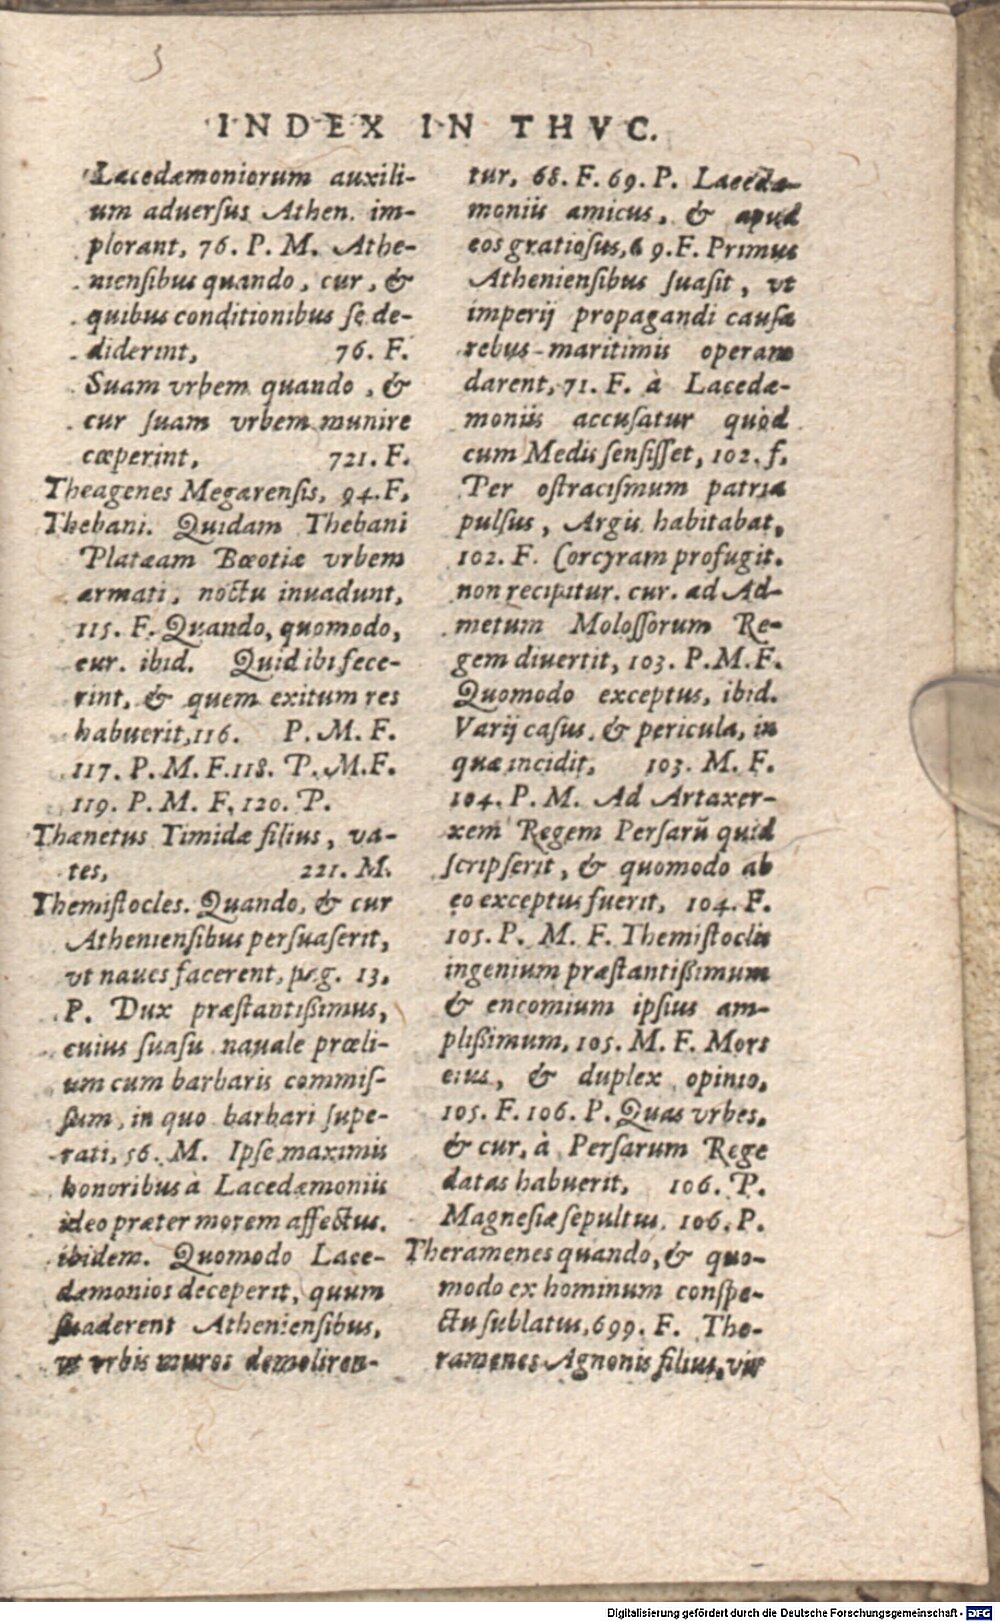 INDEX IN THVC.
Lacedæmoniorum auxili-
um aduersus Athen. im-
plorant, 76. P. M. Athe-
niensibus quando, cur, &
quibus conditionibus se de-
diderint, 76. F.
Suam vrbem quando, &
cur suam vrbem munire
cœperint, 721. F.
Theagenes Megarensis, 94. F.
Thebani. Quidam Thebani
Platæam Bœotiæ vrbem
armati, noctu inuadunt,
115. F. Quando, quomodo,
cur. ibid. Quid ibi fece-
rint, & quem exitum res
habuerit, 116. P. M. F.
117. P. M. F. 118. P. M. F.
119. P. M. F. 120. P.
Thænetus Timidæ filius, va-
tes, 221. M.
Themistocles. Quando, & cur
Atheniensibus persuaserit,
vt naues facerent, pag. 13.
P. Dux præstantißimus,
cuius suasu nauale prœli-
um cum barbaris commis-
sum, in quo barbari supe-
rati, 56. M. Ipse maximis
honoribus a Lacedæmoniis
ideo præter morem affectus.
ibidem. Quomodo Lace-
dæmonios deceperit, quum
suaderent Atheniensibus,
vt vrbis muros demoliren-
tur, 68. F. 69. P. Lacedæ-
moniis amicus, & apud
eos gratiosus, 69. F. Primus
Atheniensibus suasit, vt
imperij propagandi causa
rebus maritimis operam
darent, 71. F. à Lacedæ-
moniis accusatur quòd
cum Medis sensisset, 102. f.
Per ostracismum patria
pulsus, Argis habitabat,
102. F. Corcyram profugit.
non recipitur. cur. ad Ad-
metum Molossorum Re-
gem diuertit, 103. P. M. F.
Quomodo exceptus, ibid.
Varij casus, & pericula, in
quæ incidit, 103. M. F.
104. P. M. Ad Artaxer-
xem Regem Persarū quid
scripserit, & quomodo ab
eo exceptus fuerit, 104. F.
105. P. M. F. Themistoclis
ingenium præstantißimum
& encomium ipsius am-
plißimum, 105. M. F. Mors
eius, & duplex opinio,
105. F. 106. P. Quas vrbes,
& cur, à Persarum Rege
datas habuerit, 106. P.
Magnesiæ sepultus, 106. P.
Theramenes quando, & quo-
modo ex hominum conspe-
ctu sublatus, 699. F. The-
ramenes Agnonis filius, vir
Digitalisierung gefördert durch die Deutsche Forschungsgemeinschaft - DFG